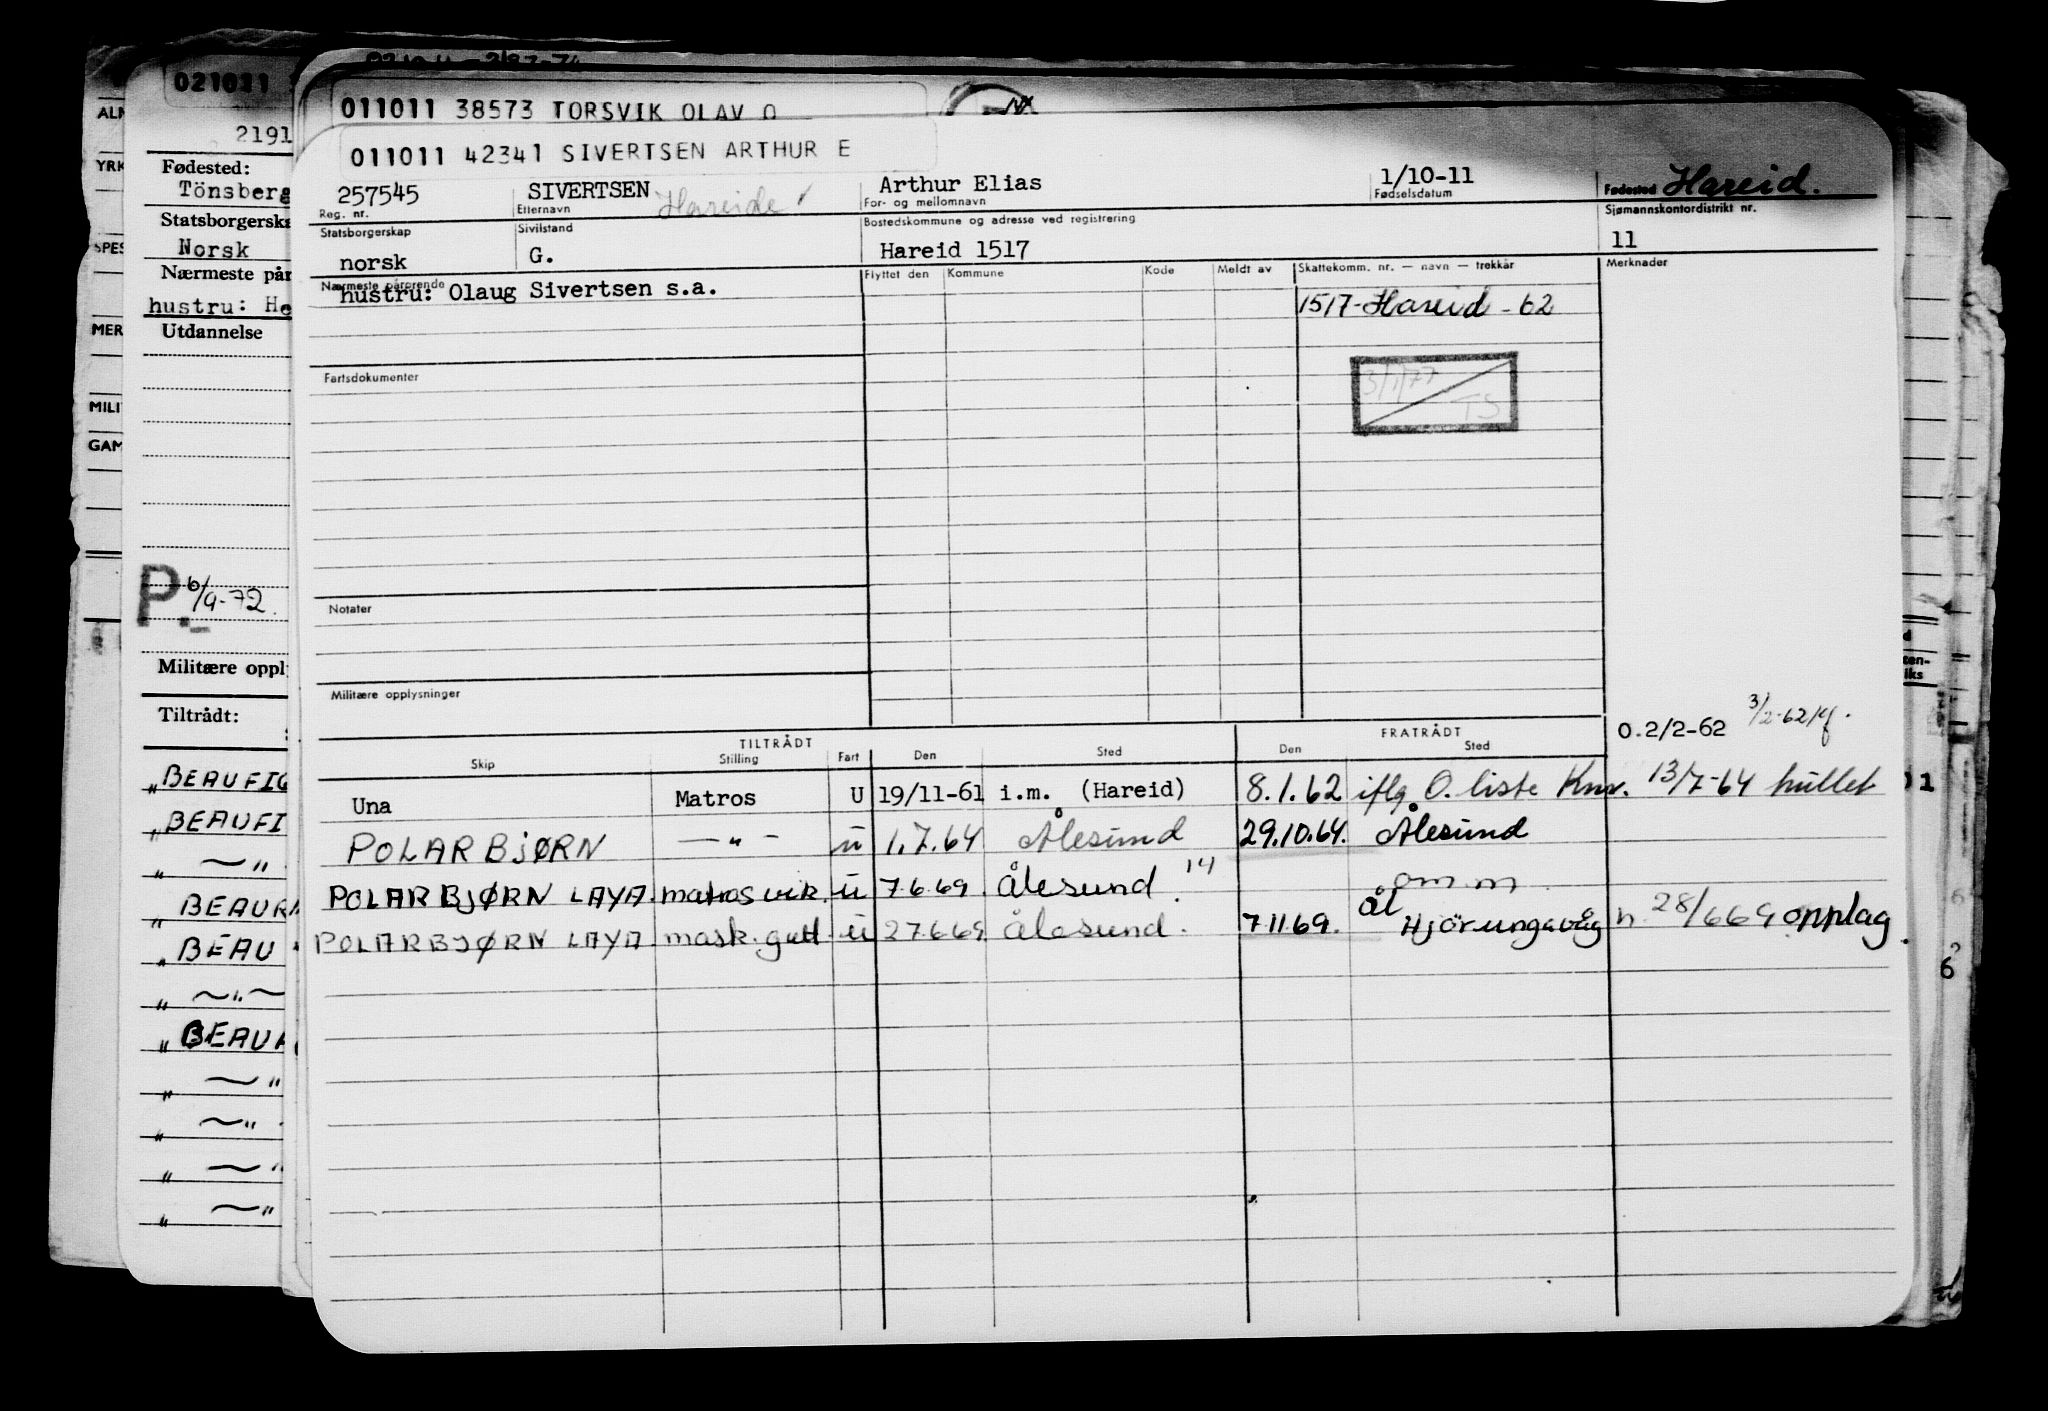 021011
011011 38573 TORSVIK OLAV O
011011 42341 SIVERTSEN ARTHUR E
2191
Fødested:
Tönsberg
Statsborgerska
Norsk
Nærmeste pår
hustru: He
Utdannelse
P. 6/9-72
Militære oppl
Tiltrådt:
" BEAUFIG
" BEAUFI
" —"
" BEAURA
" BEAU
" —"—
" BEAUA
" —"
" —"
" —"
" —"
ALM
YRK
SPES
MER
MILI
GAM
257545 SIVERTSEN Hareide Arthur Elias 1/10-11 Fødested Hareid.
Reg. nr. Etternavn For- og mellomnavn Fødselsdatum
Statsborgerskap Sivilstand Bostedskommune og adresse ved registrering Sjømannskontordistrikt nr.
norsk G. Hareid 1517 11
Nærmeste pårørende Flyttet den Kommune Kode Meldt av Skattekomm. nr. — navn — trekkår Merknader
hustru: Olaug Sivertsen s.a. 1517-Hareid-62
3/1/77 TS
Fartsdokumenter
Notater
Militære opplysninger
O.2/2-62 3/2-62
TILTRÅDT FRATRÅDT
Skip Stilling Fart Den Sted Den Sted
Una Matros U 19/11-61 i.m. (Hareid) 8.1.62 iflg. O. liste Knv. 13/7-64 hullet
POLARBJØRN —"— u 1.7.64 Ålesund 29.10.64. Ålesund
POLARBJØRN LAYA. matros vik. u 7.6.69 Ålesund. 14 omm
POLARBJØRN LAYA mask.gutt u 27.6.69. Ålesund. 7.11.69. ål Hjörungavåg h. 28/6 69 opplag.